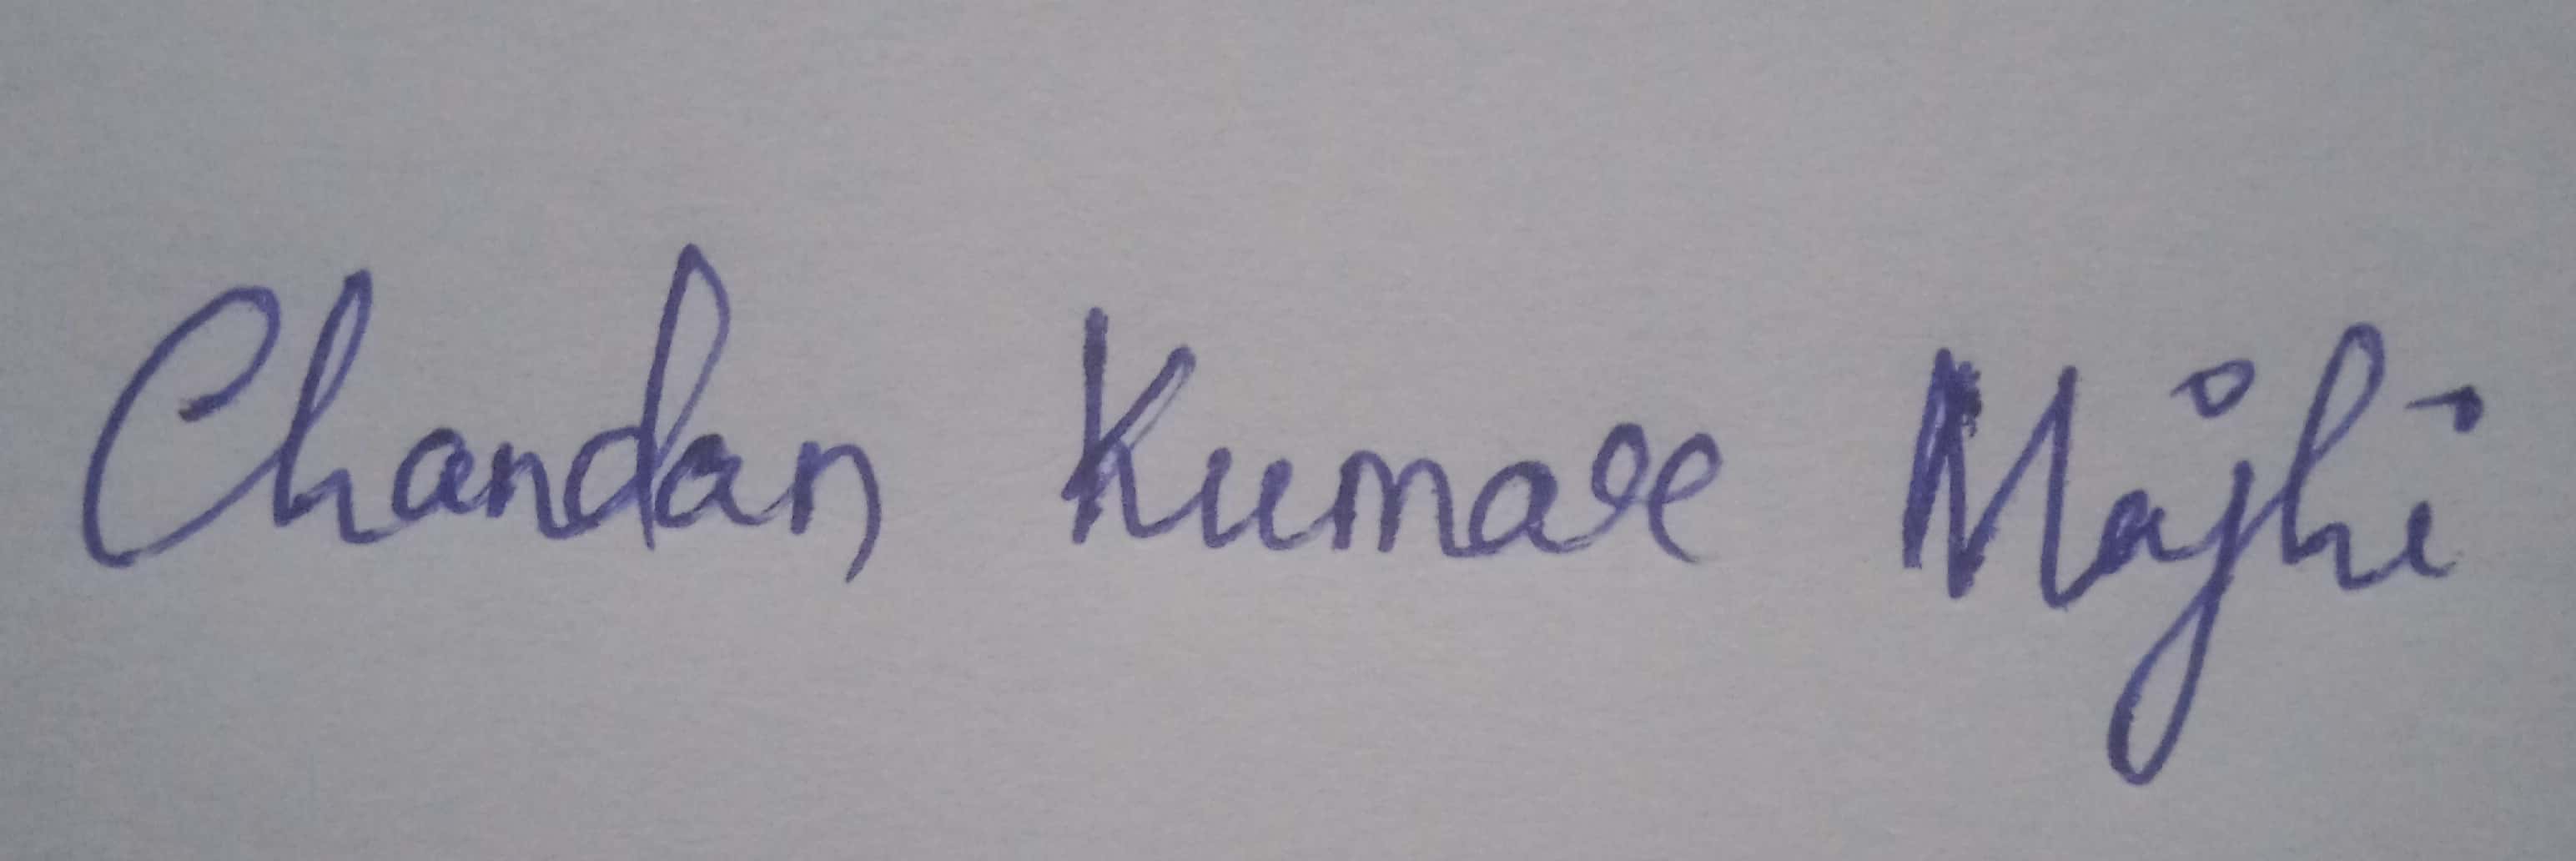 Chandan Kumar Majhi